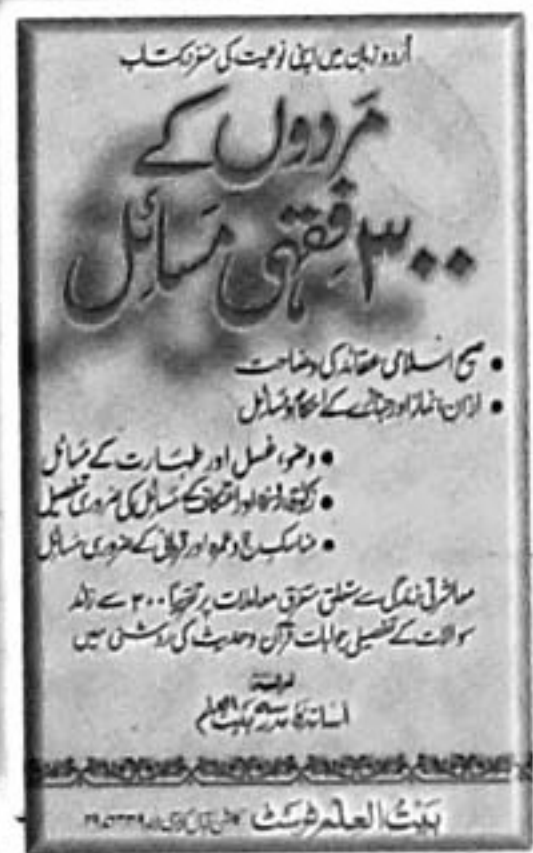 اُردو زبان میں اپنی نوعیت کی منفرد کتاب
مَردوں کے
۳۰۰ فِقہی مَسَائِل
• صحیح اسلامی عقائد کی وضاحت
• اذان، نماز اور جنازے کے احکام و مسائل
• وضو، غسل اور طہارت کے مسائل
• زکوٰۃ، روزہ اور اعتکاف کے مسائل کی ضروری تفصیل
• مناسک حج و عمرہ اور قربانی کے ضروری مسائل
معاشرتی زندگی سے متعلق متفرق معاملات پر تقریباً ۳۰۰ سے زائد
سوالات کے تفصیلی جوابات قرآن و حدیث کی روشنی میں
اساتذہ مدرسہ بیت العلم
بَیتُ العِلم ٹرسٹ